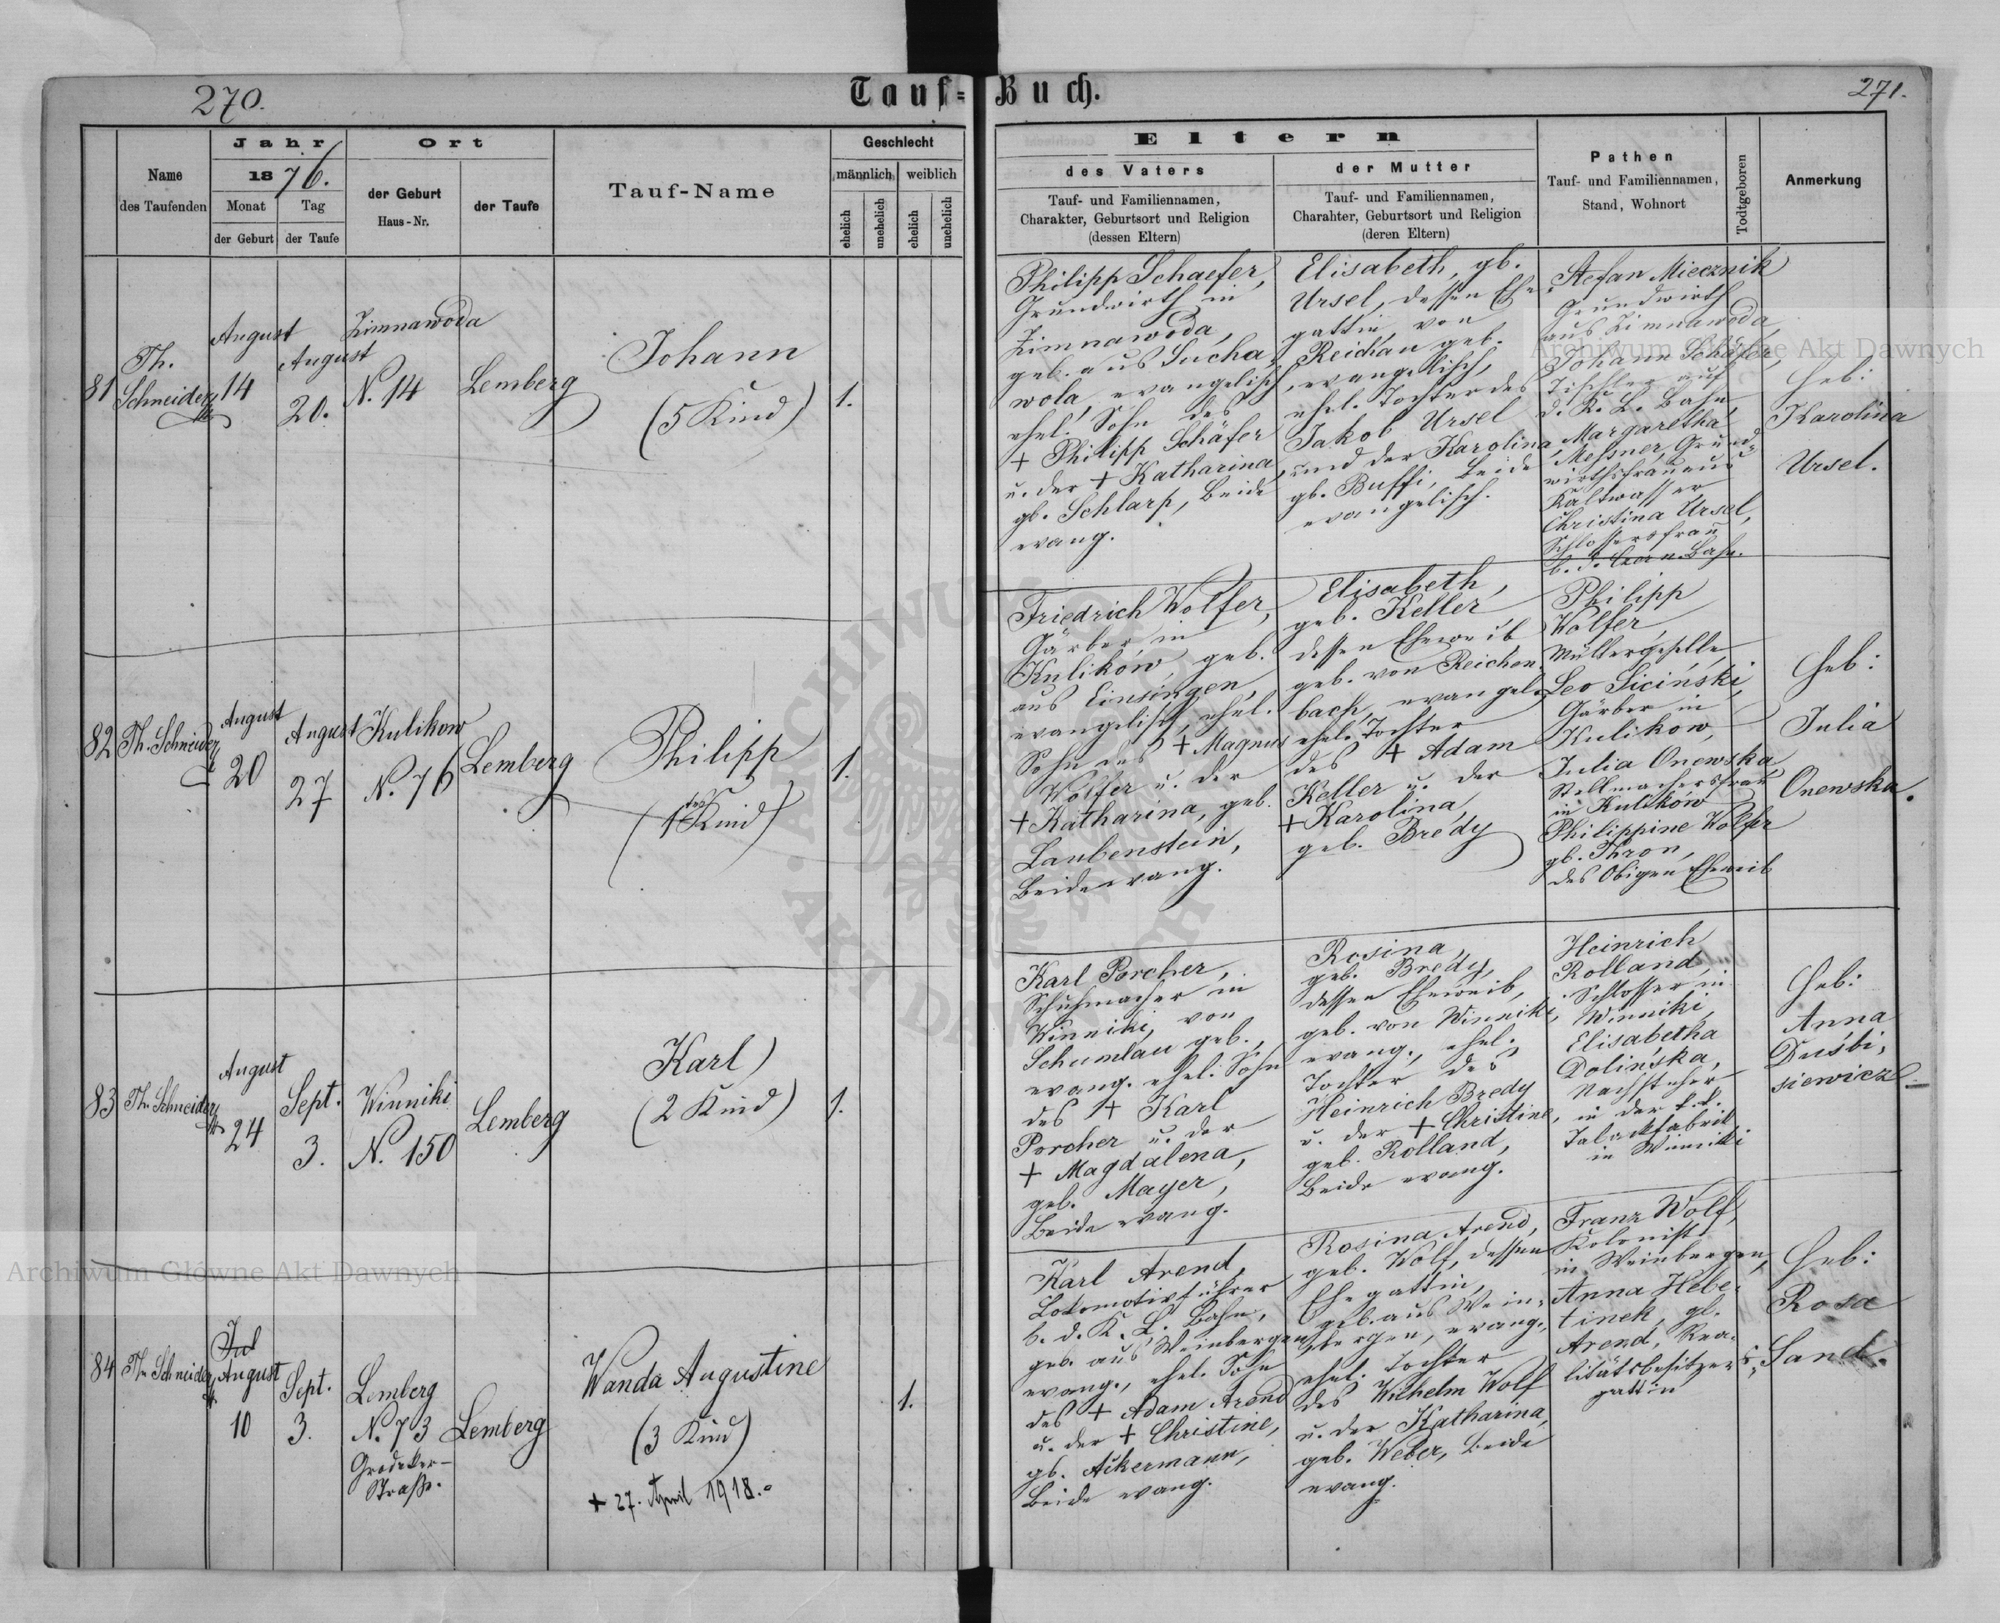 270.
Tauf-Buch.
271.
Name
des Taufenden
Jahr
1876.
Monat
Tag
der Geburt
der Taufe
Ort
der Geburt
Haus-Nr.
der Taufe
Tauf-Name
Geschlecht
männlich
weiblich
ehelich
unehelich
ehelich
unehelich
Eltern
des Vaters
Tauf- und Familiennamen,
Charakter, Geburtsort und Religion
(dessen Eltern)
der Mutter
Tauf- und Familiennamen,
Charahter, Geburtsort und Religion
(deren Eltern)
Pathen
Tauf- und Familiennamen,
Stand, Wohnort
Todtgeboren
Anmerkung
81
Th.
Schneider
August
14
August
20.
Zimnawoda
N. 14
Lemberg
Johann
(5 Kind)
1.
Philipp Schaefer,
Grundwirth in
Zimnawoda,
geb. aus Sucha
wola, evangelisch,
ehel. Sohn des
+ Philipp Schäfer
u. der + Katharina
gb. Schlarp, beide
evang.
Elisabeth, gb.
Ursel, dessen Ehe-
gattin, von
Reichau geb.
evangelisch,
ehel. Tochter des
Jakob Ursel
und der Karolina,
gb. Buffi, beide
evangelisch.
Stefan Miecznik
Grundwirth
aus Zimnawoda,
Johann Schäfer,
Tischler auf
d. K. L. Bahn,
Margaretha
Messner, Grund-
wirthsfrau aus
Kaltwasser
Christina Ursel,
Schlossersfrau
b. d. Czern. Bahn.
Heb:
Karolina
Ursel.
82
Th. Schneider
August
20
August
27
Kulikow
N. 76
Lemberg
Philipp
(1tes Kind)
1.
Friedrich Wolfer,
Gärber in
Kulików, geb.
aus Einsingen,
evangelisch, ehel.
Sohn des + Magnus
Wolfer u. der
+ Katharina, geb.
Laubenstein,
beide evang.
Elisabeth,
geb. Keller
dessen Eheweib
geb. von Reichen
bach, evangel.,
ehel. Tochter
des + Adam
Keller u. der
+ Karolina,
geb. Bredy
Philipp
Wolfer
Müllergeselle,
Leo Siciński,
Gärber in
Kulikow,
Julia Onewska
Stellmachersfrau
in Kulików
Philippine Wolfer
gb. Thron,
des Obigen Eheweib
Heb:
Julia
Onewska.
83
Th. Schneider
August
24
Sept.
3.
Winniki
N. 150
Lemberg
Karl
(2 Kind)
1.
Karl Porcher,
Schuhmacher in
Winniki, von
Schumlau geb.,
evang. ehel. Sohn
des + Karl
Porcher u. der
+ Magdalena,
geb. Mayer,
beide evang.
Rosina
geb. Bredy,
dessen Eheweib,
geb. von Winniki,
evang., ehel.
Tochter des
Heinrich Bredy
u. der + Christine,
geb. Rolland,
beide evang.
Heinrich
Rolland,
Schlosser in
Winniki,
Elisabetha
Dolińska,
in der k.k.
in Winniki
Heb:
Anna
Duśbi,
siewicz
84
Th. Schneider
Jul
August
10
Sept.
3.
Lemberg
N. 73
Grodeker-
Straße.
Lemberg
Wanda Augustine
(3 Kind)
+ 27. April 1918.
1.
Karl Arend,
Lokomotivführer
b. d. K. L. Bahn,
geb. aus Weinbergen,
evang., ehel. Sohn
des + Adam Arend
u. der + Christine,
gb. Ackermann,
beide evang.
Rosina Arend,
geb. Wolf, dessen
Ehegattin,
geb. aus Wein-
bergen, evang.,
ehel. Tochter
des Wilhelm Wolf
u. der Katharina,
geb. Weber, beide
evang.
Franz Wolf,
Kolonist
in Weinbergen,
Anna Hebe-
tinek, gb.
Arend, Rea-
litätsbesitzers-
gattin
Heb:
Rosa
Sand.
Archiwum Główne Akt Dawnych
Archiwum Główne Akt Dawnych
ARCHIWUM
AKT DAWNYCH